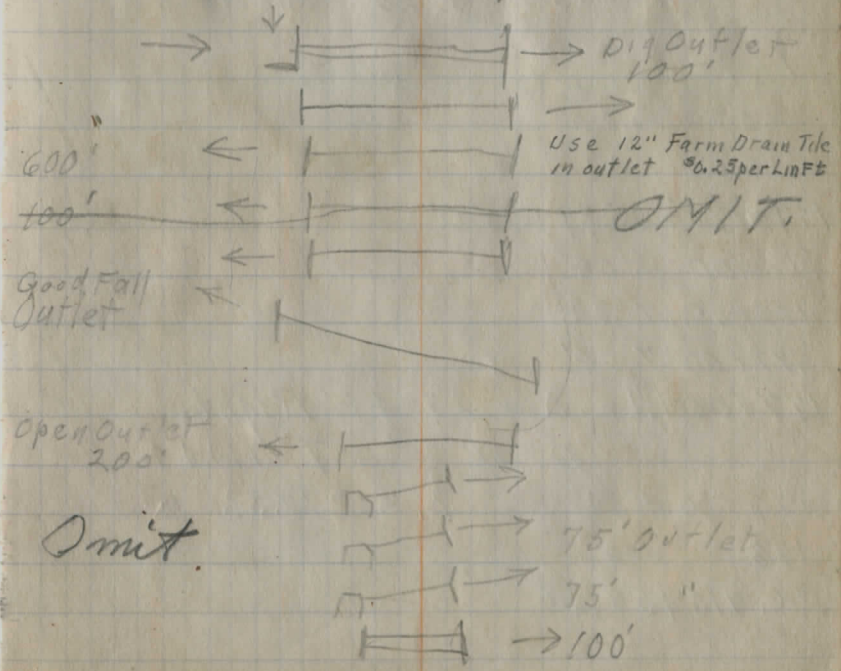 Dig Outlet
100'
600'
Use 12" Farm Drain Tile
in outlet $0.25 per Lin Ft
100'
OMIT.
Good Fall
Outlet
Open Outlet
200'
Omit
75' Outlet
75' "
100'